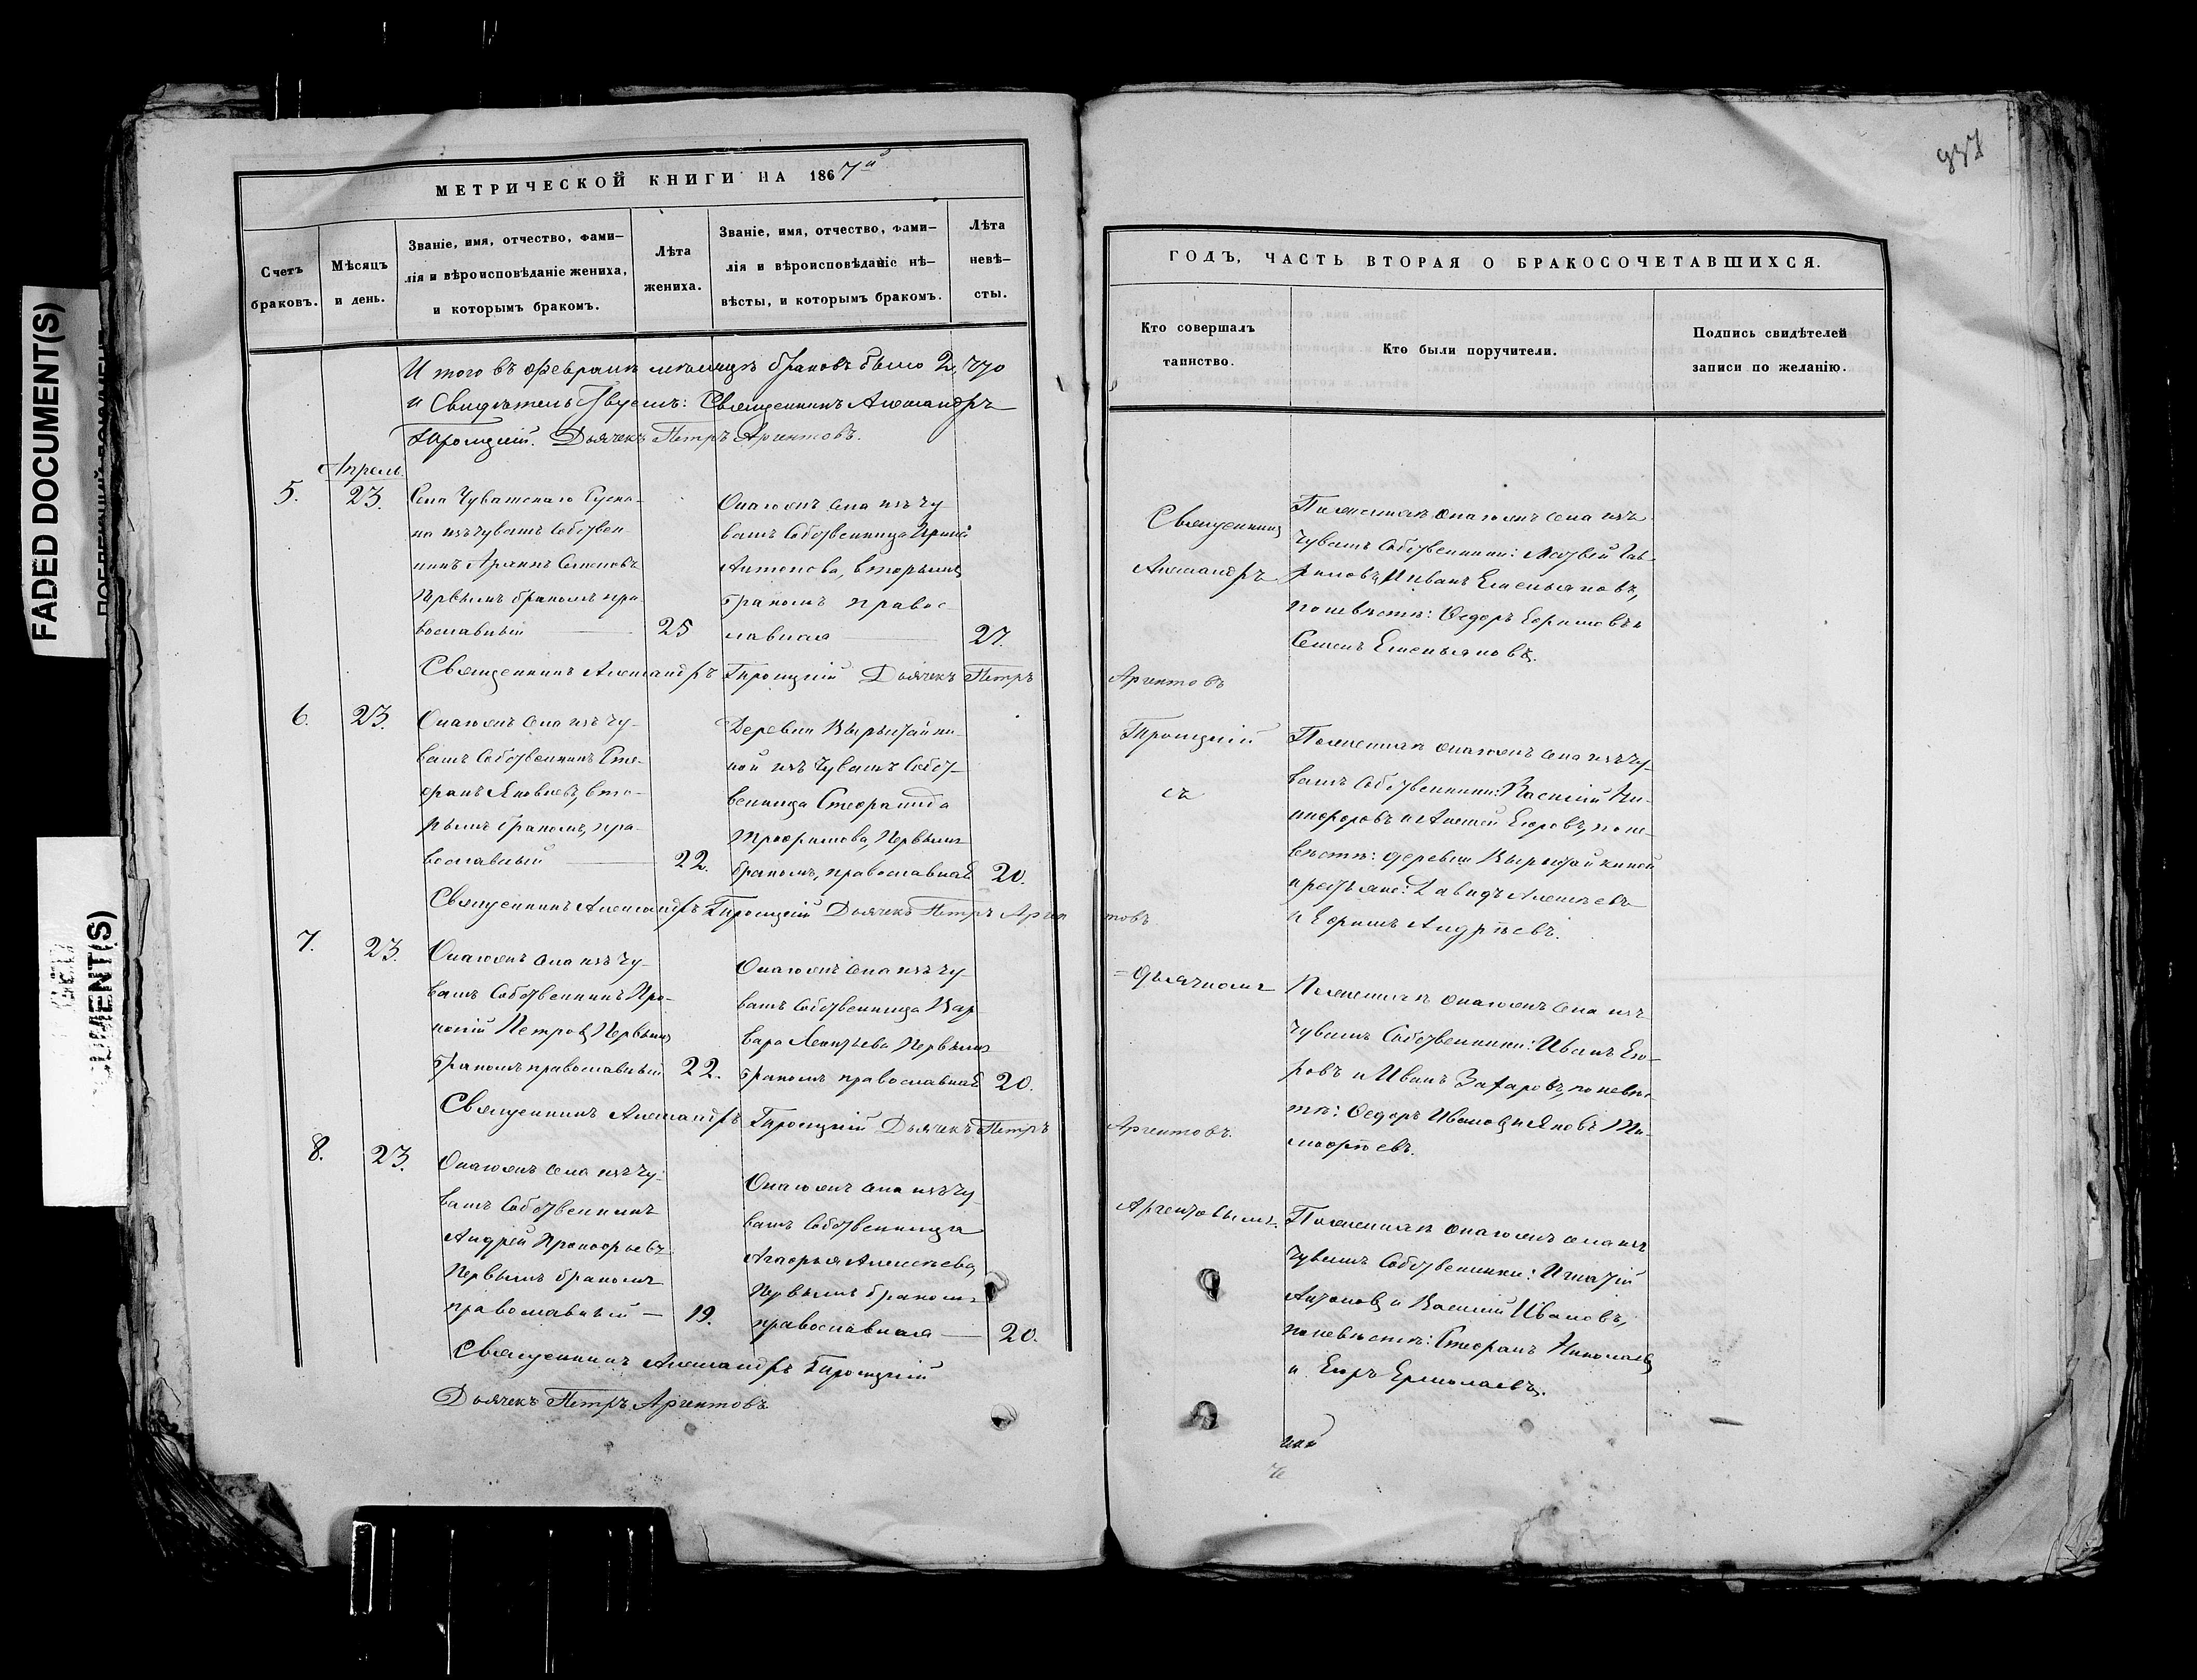 МЕТРИЧЕСКОЙ КНИГИ НА 1867й
Счетъ браковъ.
Мѣсяцъ и день.
Званіе, имя, отчество, фами-
лія и вѣроисповѣданіе жениха,
и которымъ бракомъ.
Лѣта жениха.
Званіе, имя, отчество, фами-
лія и вѣроисповѣданіе нѣ-
вѣсты, и которымъ бракомъ.
Лѣта невѣ-
сты.
И того въ Февралѣ мѣсяцѣ браковъ было 2, что
и Свидѣтельствуемъ: Священникъ Александръ
Троицкій. Дьячекъ Петръ Аргентовъ.
Апрель.
5.
23.
Села Чувашскаго
на изъ чувашъ Собствен
никъ Семеновъ
Первымъ бракомъ пра
вославный
25
Онагожъ села изъ чу
вашъ Собственница
Антонова, вторымъ
бракомъ правос
лавная
27.
Священникъ Александръ Троицкій Дьячекъ Петръ
6.
23.
Онагожъ села изъ чу-
вашъ Собственникъ Сте-
фанъ Яковлевъ, вто-
рымъ бракомъ, пра-
вославный
22.
Деревни Вырыпайки
ной изъ чувашъ Собст-
венница Стефанида
Трофимова, Первымъ
бракомъ, православная
20.
Священникъ Александръ Троицкій Дьячекъ Петръ Арген
7.
23.
Онагожъ села изъ чу-
вашъ Собственникъ Про-
копій Петровъ Первымъ
бракомъ православный
22.
Онагожъ села изъ чу
вашъ Собственница Вар
вара Леонтьева Первымъ
бракомъ православная
20.
Священникъ Александръ Троицкій Дьячекъ Петръ
8.
23.
Онагожъ села изъ чу-
вашъ Собственникъ
Андрей Прокофьевъ
Первымъ бракомъ
православный
19.
Онагожъ села изъ чу-
вашъ Собственница
Агафья Алексѣева,
Первымъ бракомъ
православная
20.
Священникъ Александръ Троицкій
Дьячекъ Петръ Аргентовъ
937
ГОДЪ, ЧАСТЬ ВТОРАЯ О БРАКОСОЧЕТАВШИХСЯ.
Кто совершалъ
таинство.
Кто были поручители.
Подпись свидѣтелей
записи по желанію.
Священникъ
Александръ
Аргентовъ
Троицкій
съ
товъ.
дьячкомъ
Аргентовъ.
Аргентовымъ.
По женихѣ онагожъ села изъ
чувашъ Собственники: Матвѣй Гав-
риловъ, Иванъ Емельяновъ,
по невѣстѣ: Ѳедоръ Ефимовъ и
Семенъ Емельяновъ.
По женихѣ онагожъ села изъ чу-
вашъ Собственники: Василій Ни-
кифоровъ и Алексѣй Егоровъ, по не-
вѣстѣ: деревни Вырыпайкиной
крестьяне: Давидъ Алексѣевъ
и Ефимъ Андрѣевъ.
По женихѣ онагожъ села изъ
чувашъ Собственники: Иванъ Его-
ровъ и Иванъ Захаровъ, по невѣс-
тѣ: Ѳедоръ Ивановъ и Яковъ Ти-
мофѣевъ.
По женихѣ онагожъ села изъ
чувашъ Собственники: Игнатій
Антоновъ и Василій Ивановъ,
по невѣстѣ: Стефанъ Николаевъ
и Егоръ Ермолаевъ.
FADED DOCUMENT(S)